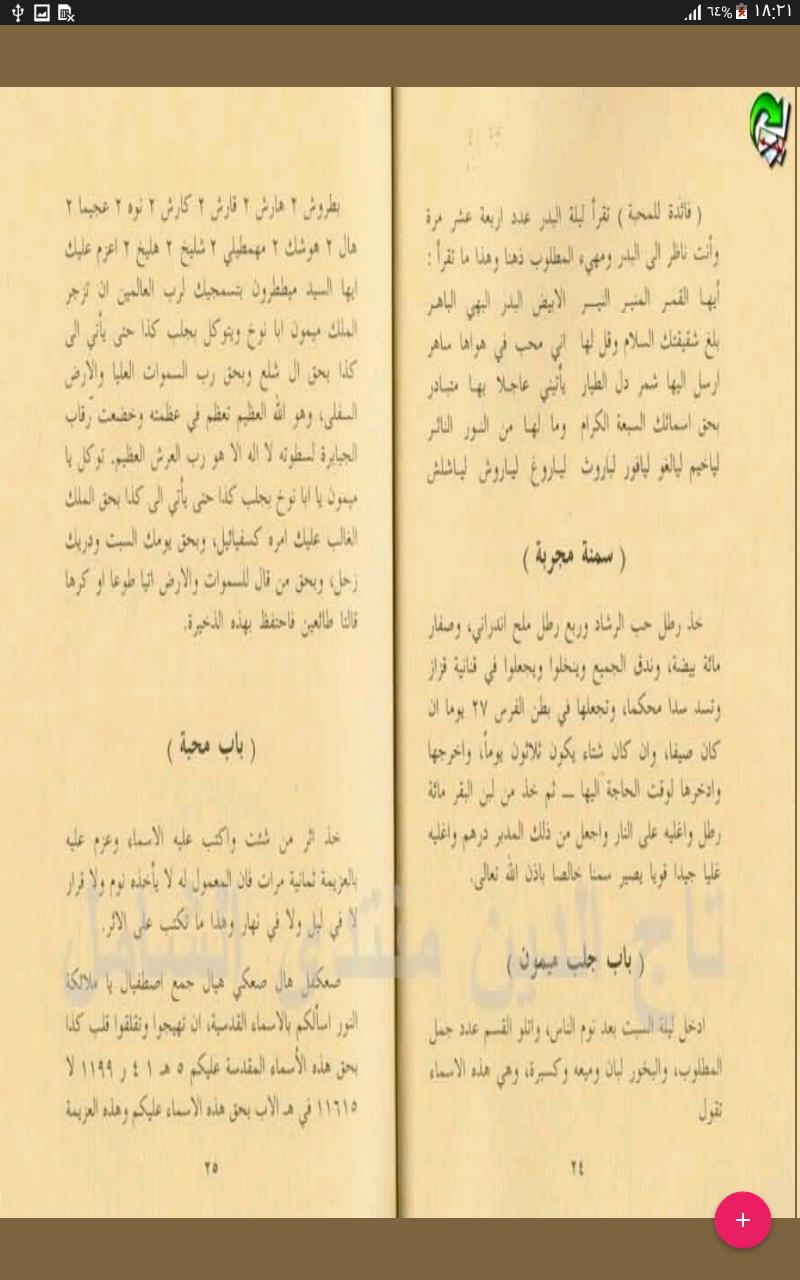 ١٨:٢١ ٦٤%
( فائدة للمحبة ) تقرأ ليلة البدر عدد اربعة عشر مرة
وأنت ناظر الى البدر ومهيء المطلوب ذهنا وهذا ما تقرأ :
أيها القمر المنير النير الابيض البدر البهي الباهر
بلغ شقيقتك السلام وقل لها اني محب في هواها ساهر
ارسل اليها شمر دل الطيار يأتيني عاجلا بها متبادر
بحق اسمائك السبعة الكرام وما لها من النور النائر
لياخيم ليالغو ليافور لياروث لياروغ لياروش لياشلش
( سمنة مجربة )
خذ رطل حب الرشاد وربع رطل ملح اندراني، وصفار
مائة بيضة، وندق الجميع وينخلوا ويجعلوا في قنانية قزاز
وتسد سدا محكما، وتجعلها في بطن الفرس ٢٧ يوما ان
كان صيفا، وان كان شتاء يكون ثلاثون يوماً، واخرجها
وادخرها لوقت الحاجة اليها ــ ثم خذ من لبن البقر مائة
رطل واغليه على النار واجعل من ذلك المدبر درهم واغليه
غليا جيدا قويا يصير سمنا خالصا باذن الله تعالى.
( باب جلب ميمون )
ادخل ليلة السبت بعد نوم الناس، واتلو القسم عدد جمل
المطلوب، والبخور لبان وميعه وكسبرة، وهي هذه الاسماء
تقول
٢٤
بطروش ٢ هارش ٢ قارش ٢ كارش ٢ نوه ٢ عجيما ٢
هال ٢ هوشك ٢ مهمطيلي ٢ شليخ ٢ هليخ ٢ اعزم عليك
ايها السيد ميططرون بتسمجيك لرب العالمين ان تزجر
الملك ميمون ابا نوخ ويتوكل بجلب كذا حتى يأتي الى
كذا بحق ال شلع وبحق رب السموات العليا والارض
السفلى، وهو الله العظيم تعظم في عظمته وخضعت رقاب
الجبابرة لسطوته لا اله الا هو رب العرش العظيم. توكل يا
ميمون يا ابا نوخ بجلب كذا حتى يأتي الى كذا بحق الملك
الغالب عليك امره كسفيائيل، وبحق يومك السبت ودريك
زحل، وبحق من قال للسموات والارض اتيا طوعا او كرها
قالتا طائعين فاحتفظ بهذه الذخيرة.
( باب محبة )
خذ اثر من شئت واكتب عليه الاسماء وعزم عليه
بالعزيمة ثمانية مرات فان المعمول له لا يأخذه نوم ولا قرار
لا في ليل ولا في نهار وهذا ما تكتب على الاثر.
صعكفل هال صعكي هيال جمع اصطفيال يا ملائكة
النور اسألكم بالاسماء القدسية، ان تهيجوا وتقلقوا قلب كذا
بحق هذه الأسماء المقدسة عليكم ٥ هـ ١ ٤ ر ١١٩٩ لا
١١٦١٥ في هـ الاب بحق هذه الاسماء عليكم وهذه العزيمة
٢٥
تاج الدين منتدى الشامل